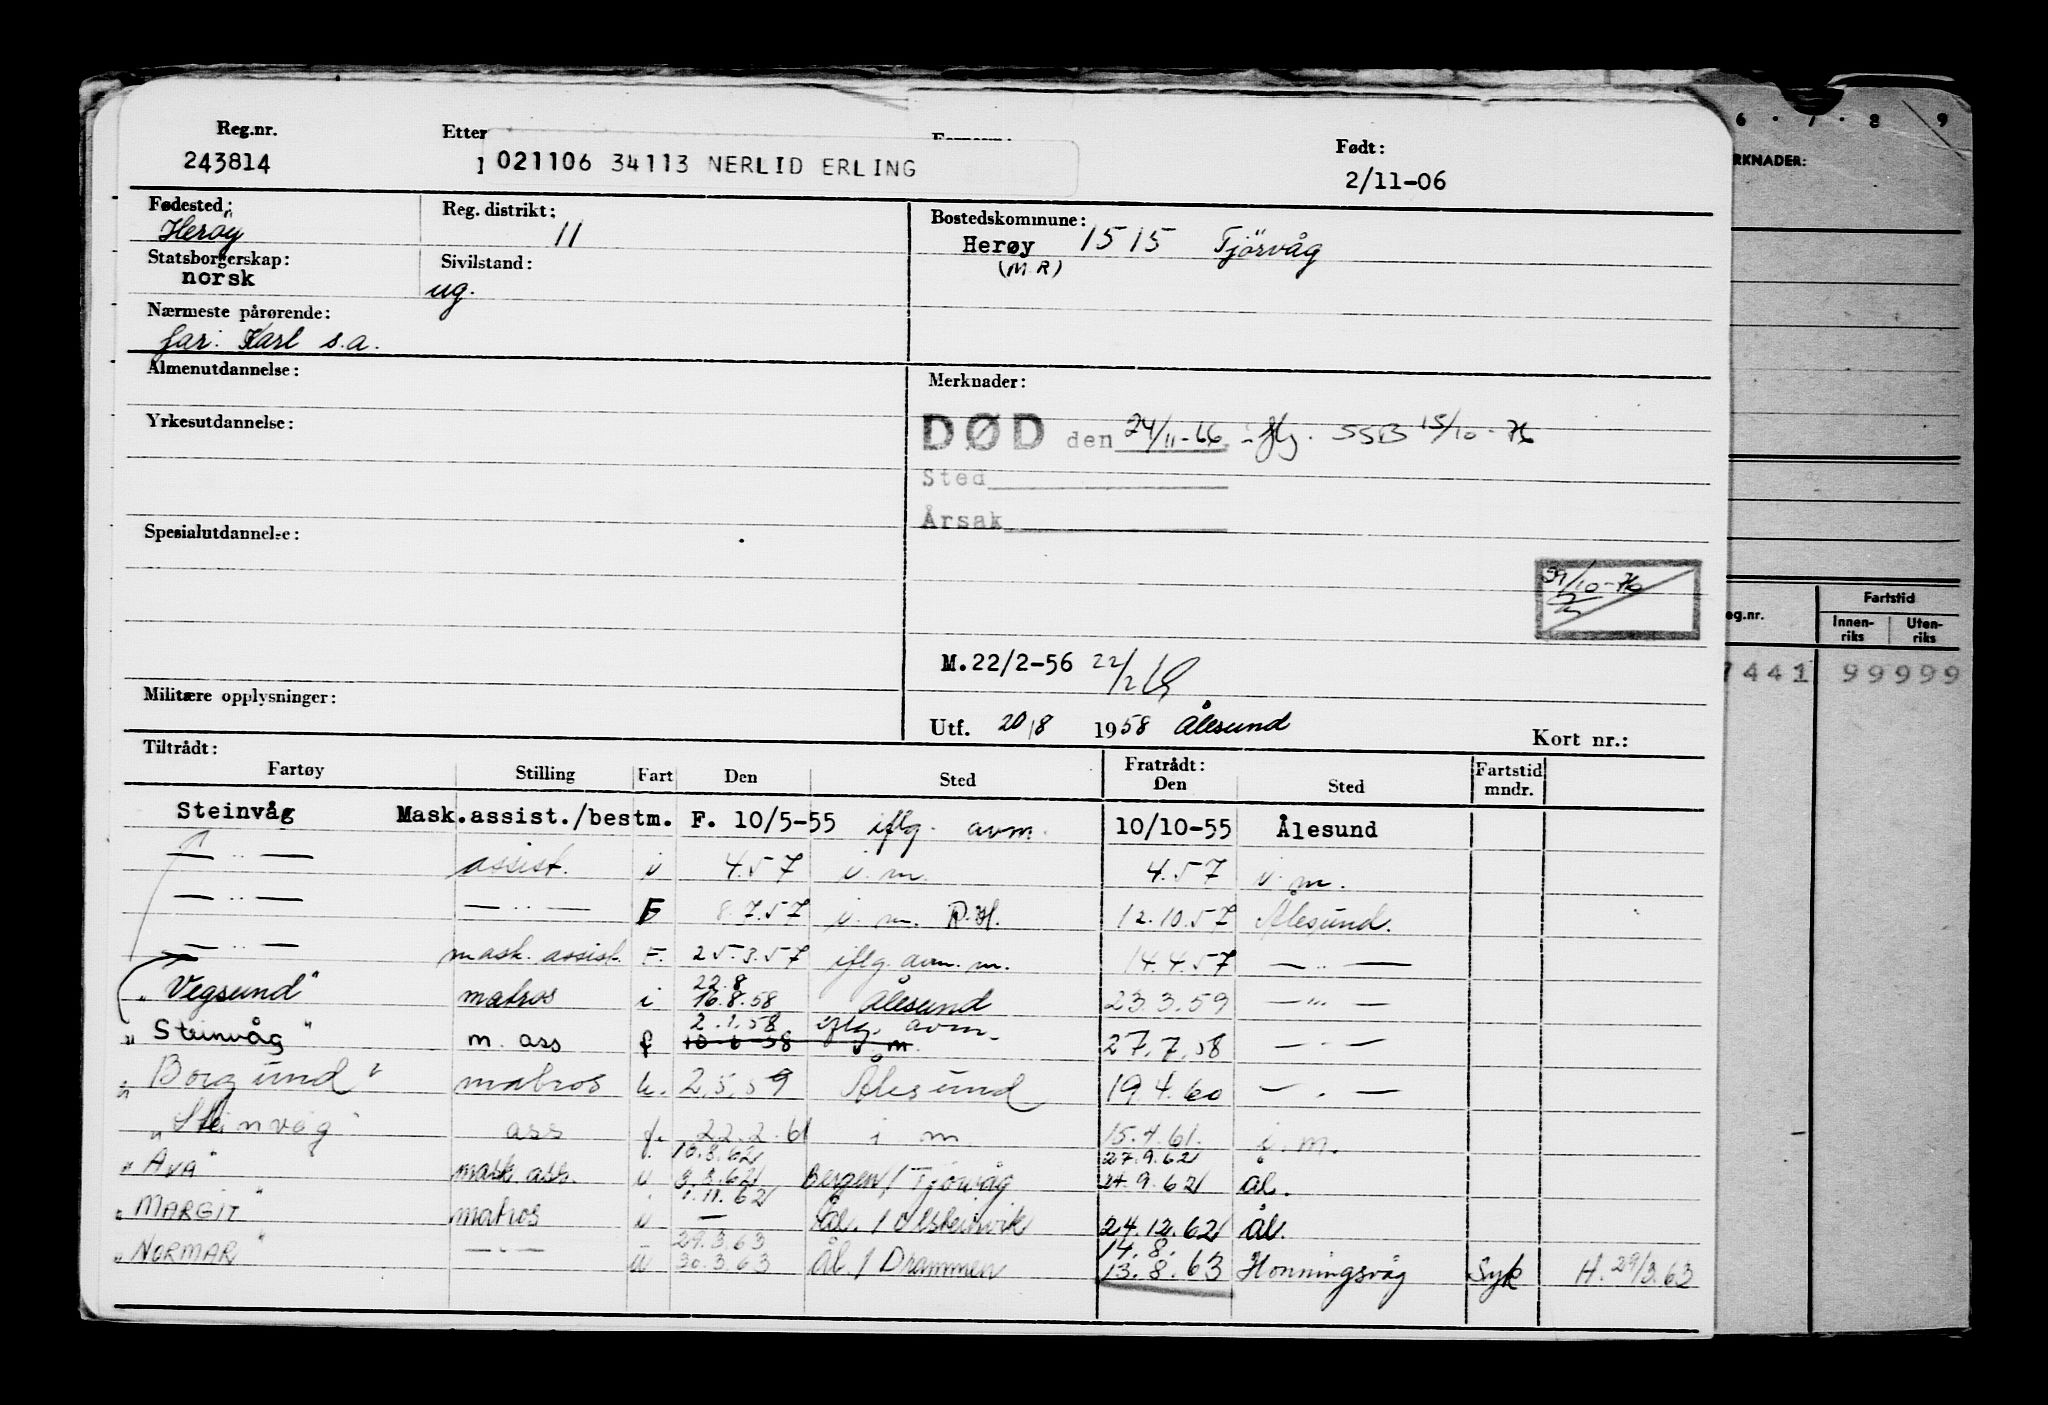 Reg.nr. Etter Født:
243814 021106 34113 NERLID ERLING 2/11-06
Fødested: Reg. distrikt: Bostedskommune:
Herøy 11 Herøy 1515 Tjörvåg
(M.R)
Statsborgerskap: Sivilstand:
norsk ug.
Nærmeste pårørende:
far: Karl s.a.
Almenutdannelse: Merknader:
Yrkesutdannelse: DØD den 24/11-66 iflg. SSB 15/10-76
Sted
Årsak
Spesialutdannelse:
M.22/2-56 22/2
Militære opplysninger:
Utf. 20/8 1958 Ålesund
Kort nr.:
Tiltrådt: Fratrådt:
Fartøy Stilling Fart Den Sted Den Sted Fartstid mndr.
Steinvåg Mask.assist./bestm. F. 10/5-55 iflg. avm. 10/10-55 Ålesund
— .. — assist. 4.57 i. m. 4.57 i. m.
— .. — — .. — F 8.7.57 i. m. 12.10.57 Ålesund.
— .. — mask. assist. F. 25.3.57 iflg. avm. m. 14.4.57 — .. —
22.8
"Vegsund" matros i 16.8.58 Ålesund 23.3.59 — " —
2.1.58 iflg. avm.
"Steinvåg" m. ass f 27.7.58 — . —
"Borgund" matros u. 2.5.59 Ålesund 19.4.60 — . —
"Steinvåg ass f. 22.2.61 i m. 15.4.61. i. m.
10.8.62 27.9.62
"AVA" mask ass. u 3.8.62 Bergen/Tjörvåg 24.9.62 Ål.
1.11.62
"MARGIT" matros u — Ål. / Ulsteinvik 24.12.62 Ål.
29.3.63 14.8.
"NORMAR" — . — u 30.3.63 Ål. / Drammen 13.8.63 Honningsvåg Syk H. 29/3.63
6 . 7 . 8 9
RKNADER:
eg.nr. Fartstid
Innenriks Utenriks
7441 99999